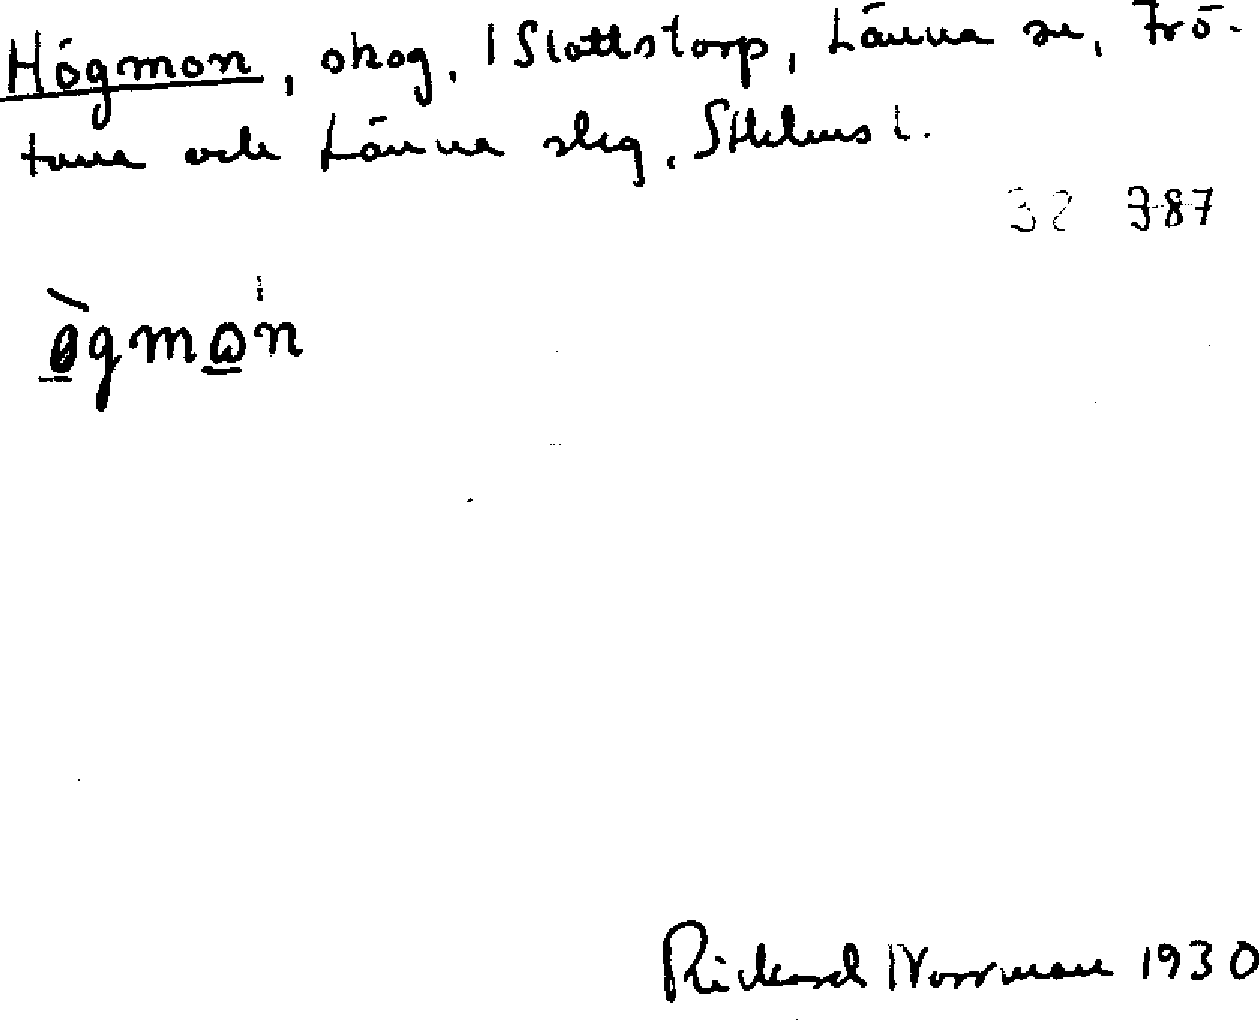 Högmon, skog, Slottstorp, Länna sn, Frö-
tuna och Länna slg, Sthlms l.
32 787
ögmon
Rickard Norrman 1930